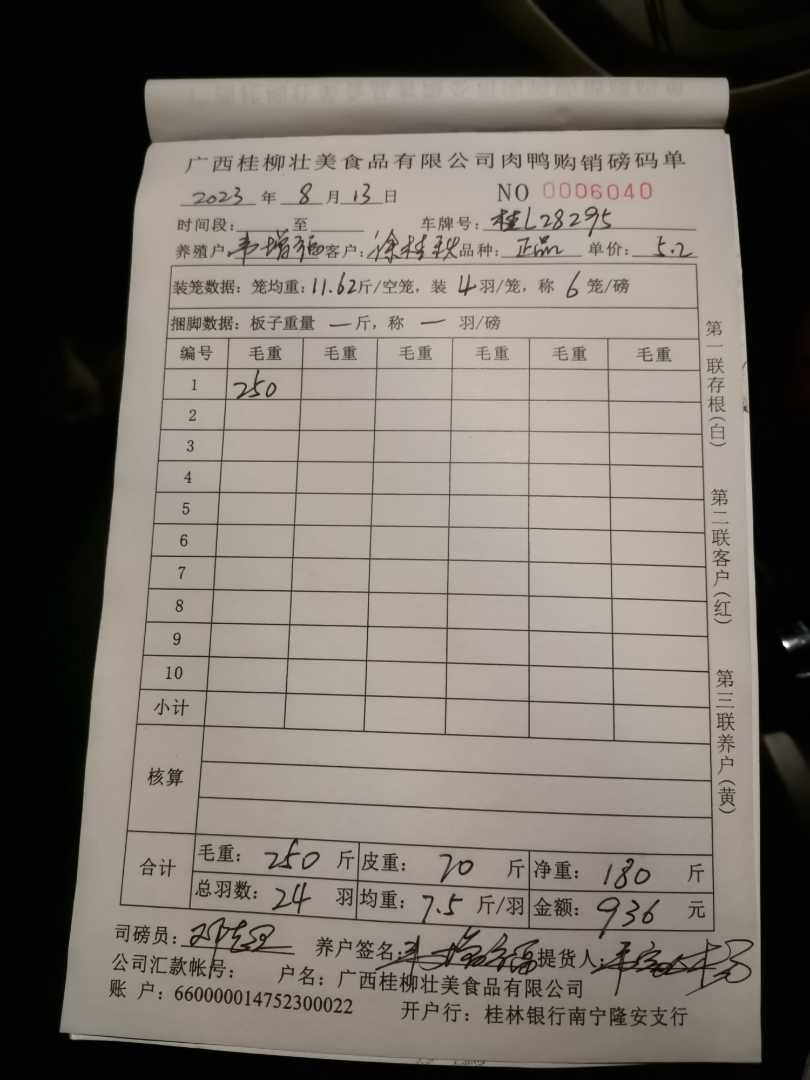 广西桂柳壮美食品有限公司肉鸭购销磅码单
2023 年 8 月 13 日 NO 0006040
时间段: 至 车牌号: 桂L28295
养殖户 韦增强 客户: 徐桂秋 品种: 正品 单价: 5.2
装笼数据: 笼均重: 11.62斤/空笼, 装 4 羽/笼, 称 6 笼/磅
捆脚数据: 板子重量 一 斤, 称 一 羽/磅
编号 毛重 毛重 毛重 毛重 毛重 毛重
1 250
2
3
4
5
6
7
8
9
10
小计
核算
合计 毛重: 250 斤 皮重: 70 斤 净重: 180 斤
总羽数: 24 羽 均重: 7.5 斤/羽 金额: 936 元
司磅员: 养户签名: 提货人:
公司汇款帐号: 户名: 广西桂柳壮美食品有限公司
账 户: 660000014752300022 开户行: 桂林银行南宁隆安支行
第一联存根(白)
第二联客户(红)
第三联养户(黄)